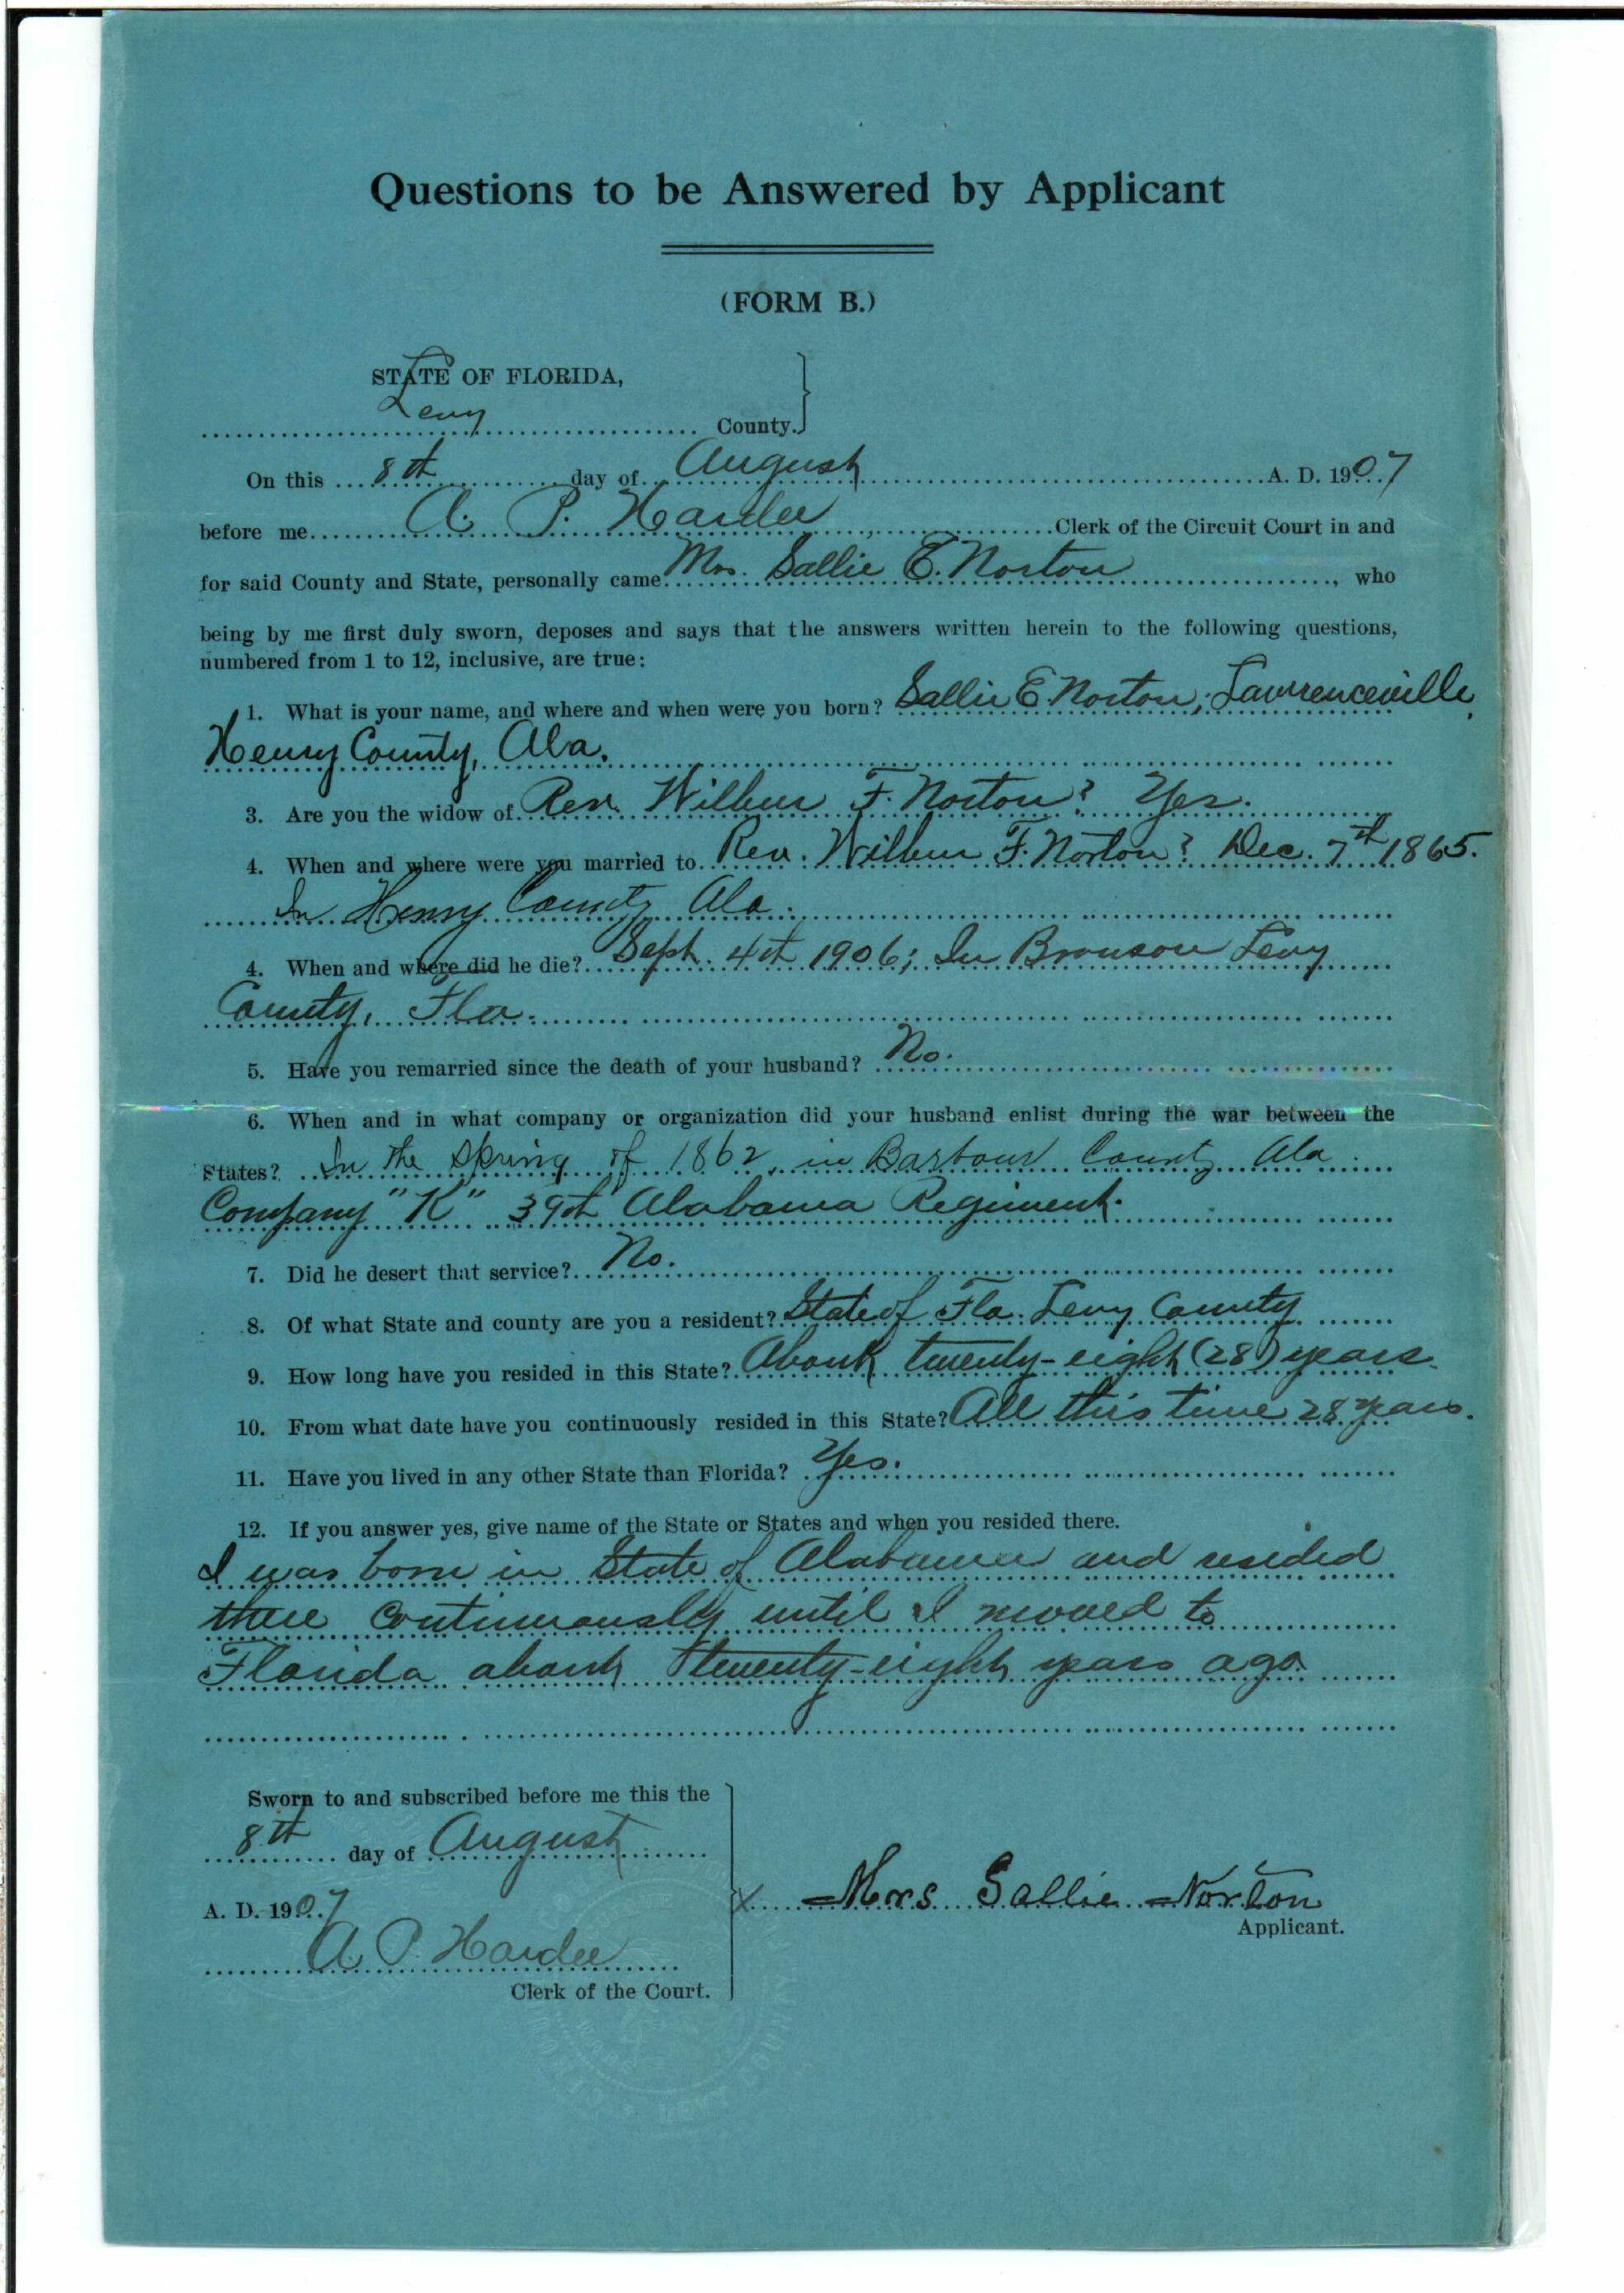 Questions to be Answered by Applicant
(FORM B.)
STATE OF FLORIDA,
Levy County.
On this 8th day of August A. D. 1907
before me A. P. Hardee Clerk of the Circuit Court in and
for said County and State, personally came Mrs. Sallie E. Norton, who
being by me first duly sworn, deposes and says that the answers written herein to the following questions,
numbered from 1 to 12, inclusive, are true:
1. What is your name, and where and when were you born? Sallie E Norton, Lawrenceville,
Henry County, Ala.
3. Are you the widow of Rev. Wilbur F. Norton? Yes.
4. When and where were you married to Rev. Wilbur F. Norton? Dec. 7th 1865.
In Henry County Ala.
4. When and where did he die? Sept. 4th 1906; In Bronson Levy
County, Fla.
5. Have you remarried since the death of your husband? No.
6. When and in what company or organization did your husband enlist during the war between the
States? In the Spring of 1862, in Barbour County Ala.
Company "K" 39th Alabama Regiment.
7. Did he desert that service? No.
8. Of what State and county are you a resident? State of Fla. Levy County
9. How long have you resided in this State? About twenty-eight (28) years.
10. From what date have you continuously resided in this State? All this time 28 years.
11. Have you lived in any other State than Florida? Yes.
12. If you answer yes, give name of the State or States and when you resided there.
I was born in State of Alabama and resided
there continuously until I moved to
Florida about twenty-eight years ago.
Sworn to and subscribed before me this the
8th day of August
A. D. 1907
x Mrs Sallie Norton
Applicant.
A. P. Hardee
Clerk of the Court.
LEVY COUNTY